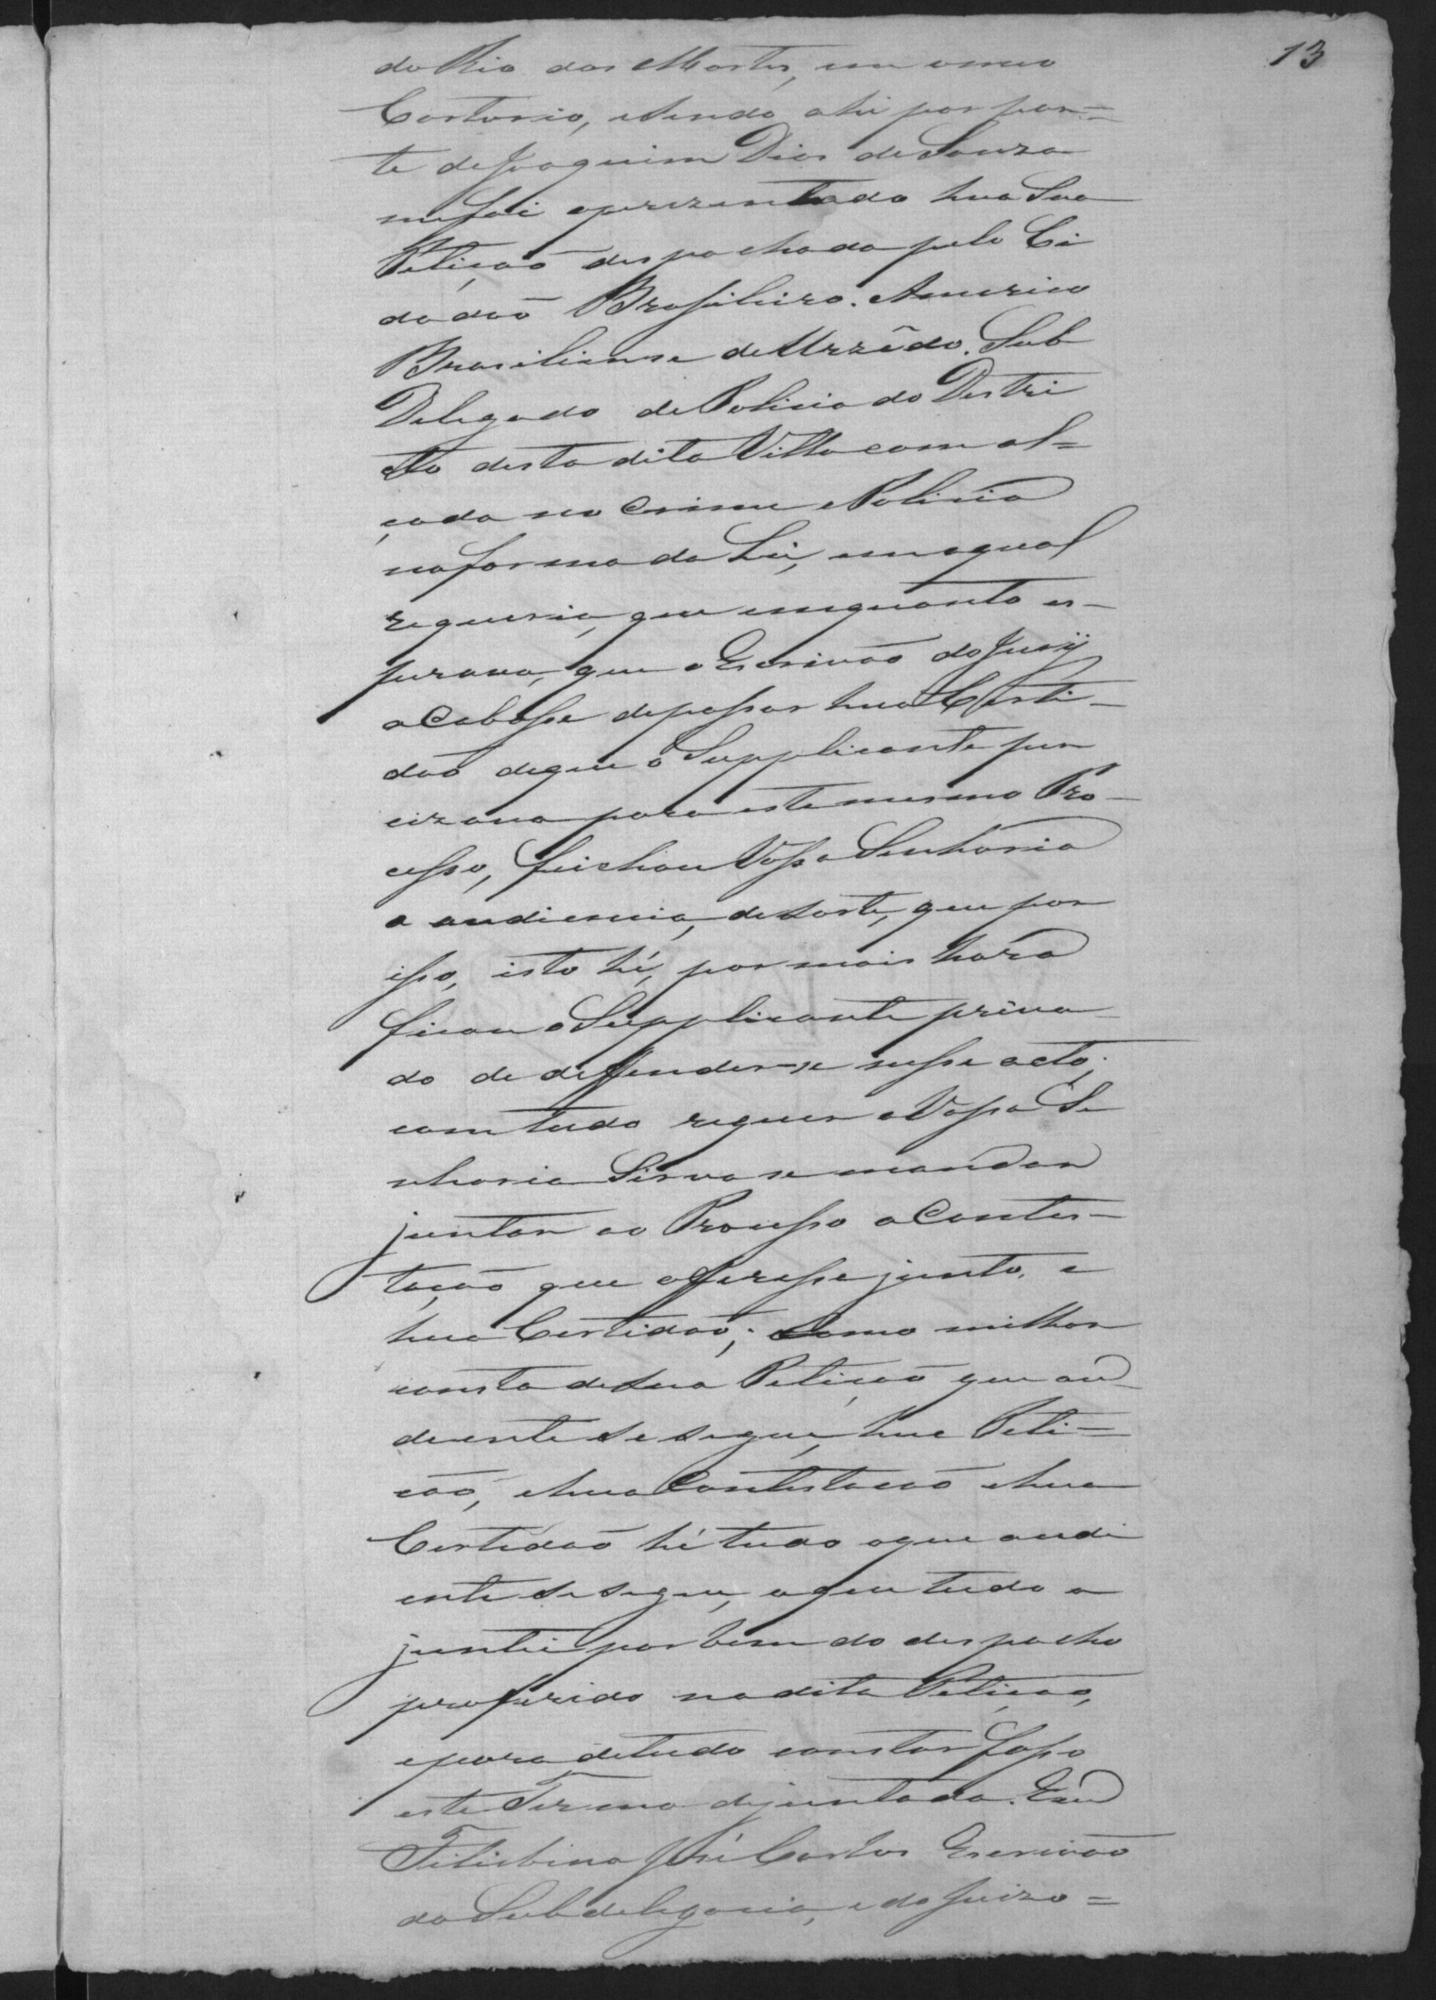 13
do Rio das Mortes, em o meu
Cartorio, esendo ahi por par=
te deJoaquim Dias deSouza
mefoi aprezentado hua Sua
Petiçaõ despachada pelo Ci
dadaõ Brasileiro. Americo
Brasiliense deUrzêdo. Sub
Delegado dePolicia do Destri
cto desta dita Villa com al=
çada no Crime ePolicia
naforma da Lei, em aqual
requeria, que emquanto es-
perava, que o Escrivaõ do Jury
aCabasse depassar hua Certi-
daõ deque o Supplicante pre
cizava para este mesmo Pro-
cesso, feichou Vossa Senhoria
a audiencia, desorte, que por
isso, isto hé, por mais hora
ficou o Supplicante priva
do de deffender-se nesse acto;
com tudo requer a Vossa Se
nhoria Sirva se mandar
juntar ao Processo aContes-
taçaõ que offeresse junto, e
hua Certidaõ; Como milhor
consta desua Petiçaõ que au
diente se segue, hua Peti=
caõ, ehua Contestacaõ ehua
Certidaõ hé tudo oque audi
ente se segue, oque tudo a
juntei por bem do despacho
proferido nadita Peticaõ,
epara detudo constar fasso
este Termo dejuntada. Eu
Filisbino José Carlos Escrivaõ
da Subdelegacia, e do Juizo=